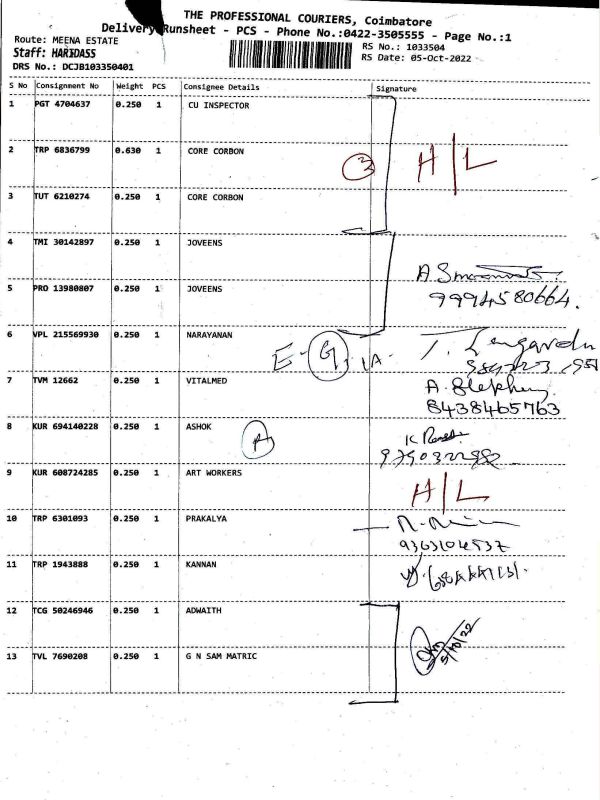 THE PROFESSIONAL COURIERS, Coimbatore
Delivery Runsheet - PCS - Phone No.:0422-3505555 - Page No.:1
Route: MEENA ESTATE
RS No.: 1033504
Staff: HARIDASS
RS Date: 05-Oct-2022
DRS No.: DCJB103350401
S No Consignment No Weight PCS Consignee Details Signature
1 PGT 4704637 0.250 1 CU INSPECTOR
2 TRP 6836799 0.630 1 CORE CORBON 3 H/L
3 TUT 6210274 0.250 1 CORE CORBON
4 TMI 30142897 0.250 1 JOVEENS
5 PRO 13980807 0.250 1 JOVEENS 9994580664.
6 VPL 215569930 0.250 1 NARAYANAN
7 TVM 12662 0.250 1 VITALMED A. Stephen
8438465763
8 KUR 694140228 0.250 1 ASHOK A
9 KUR 608724285 0.250 1 ART WORKERS H/L
10 TRP 6301093 0.250 1 PRAKALYA
11 TRP 1943888 0.250 1 KANNAN
12 TCG 50246946 0.250 1 ADWAITH
5/10/22
13 TVL 7690208 0.250 1 G N SAM MATRIC